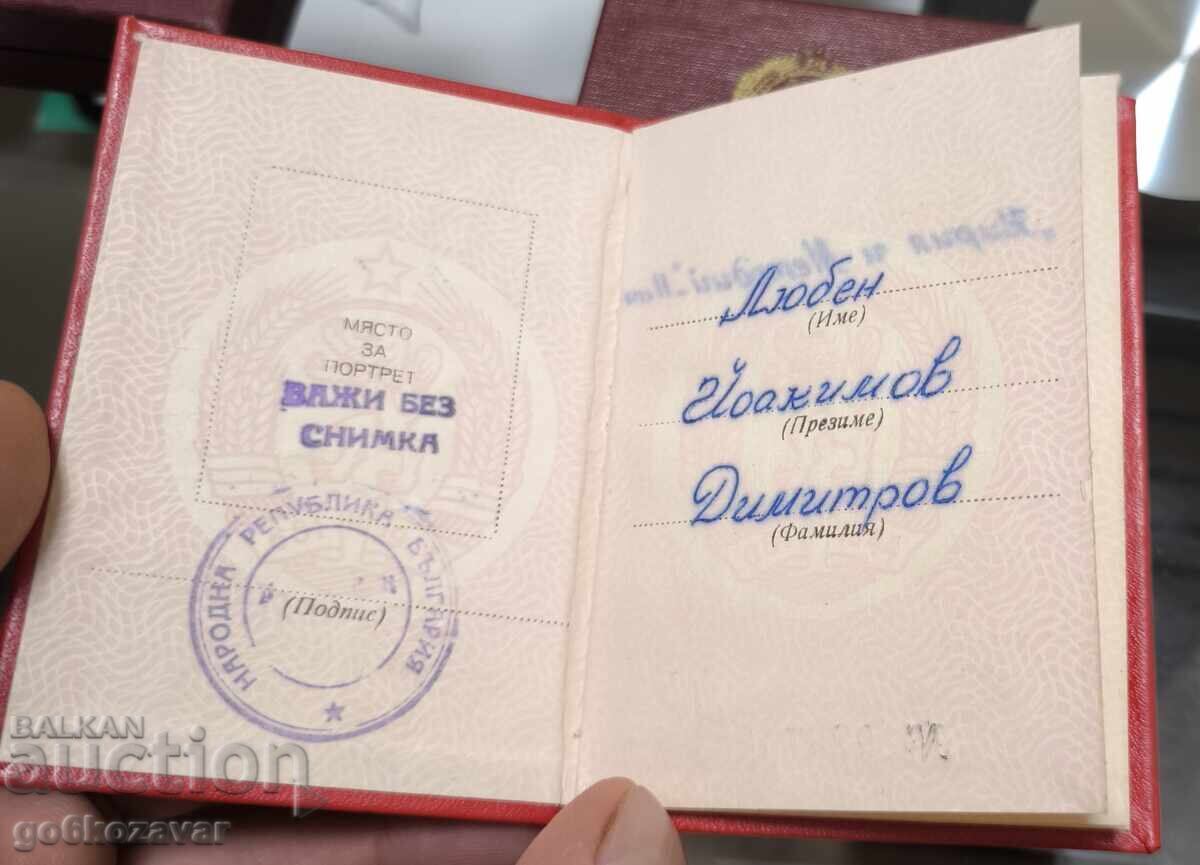 МЯСТО
ЗА
ПОРТРЕТ
ВАЖИ БЕЗ
СНИМКА
НАРОДНА РЕПУБЛИКА БЪЛГАРИЯ
(Подпис)
Любен
(Име)
Йоакимов
(Презиме)
Димитров
(Фамилия)
BALKAN
auction
go6kozavar